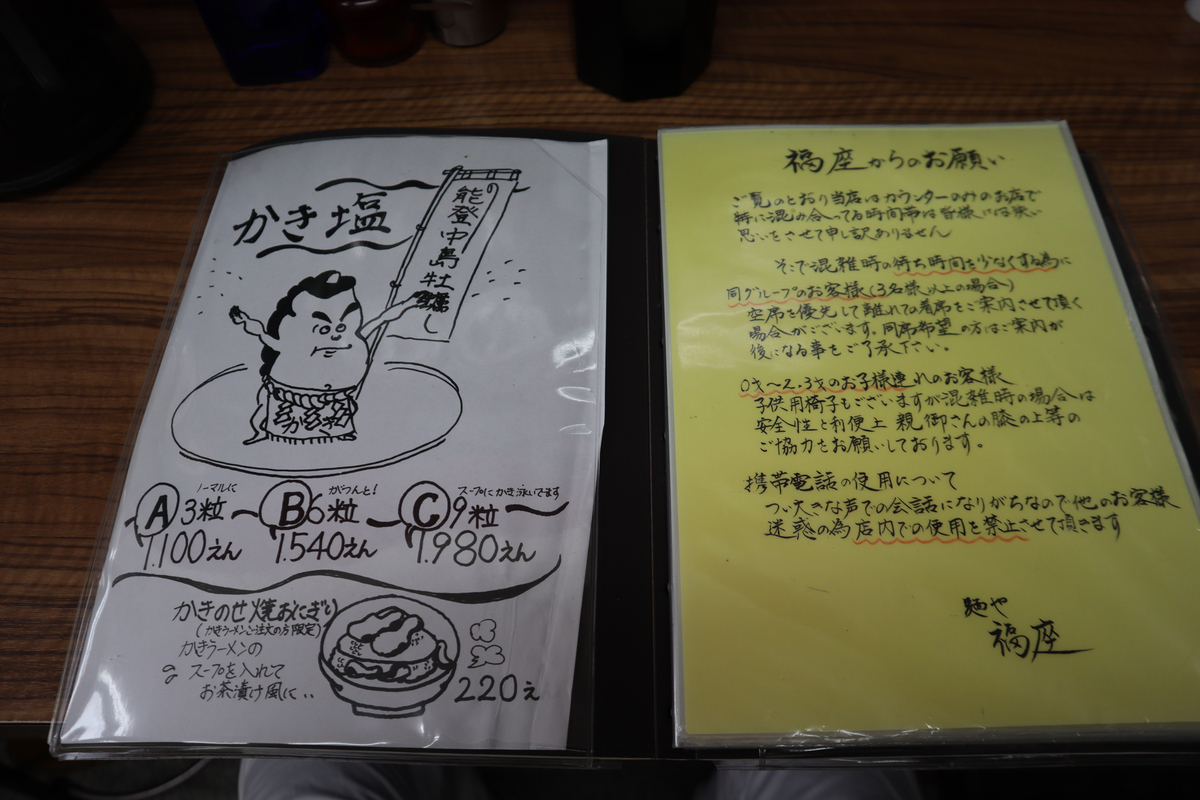 かき塩
能登中島牡蠣
ノーマルに
A 3粒
1.100えん
がつんと!
B 6粒
1.540えん
スープにかき泳いでます
C 9粒
1.980えん
かきのせ焼おにぎり
(かきラーメンご注文の方限定)
かきラーメンの
スープを入れて
お茶漬け風に‥
220え
福座からのお願い
ご覧のとおり当店はカウンターのみのお店で
特に混み合ってる時間帯は皆様には狭い
思いをさせて申し訳ありません
そこで混雑時の待ち時間を少なくする為に
同グループのお客様(3名様以上の場合)
空席を優先して離れての着席をご案内させて頂く
場合がございます。同席希望の方はご案内が
後になる事をご了承下さい。
0才〜2.3才のお子様連れのお客様
子供用椅子もございますが混雑時の場合は
安全性と利便上 親御さんの膝の上等の
ご協力をお願いしております。
携帯電話の使用について
つい大きな声での会話になりがちなので他のお客様
迷惑の為店内での使用を禁止させて頂きます
麺や
福座